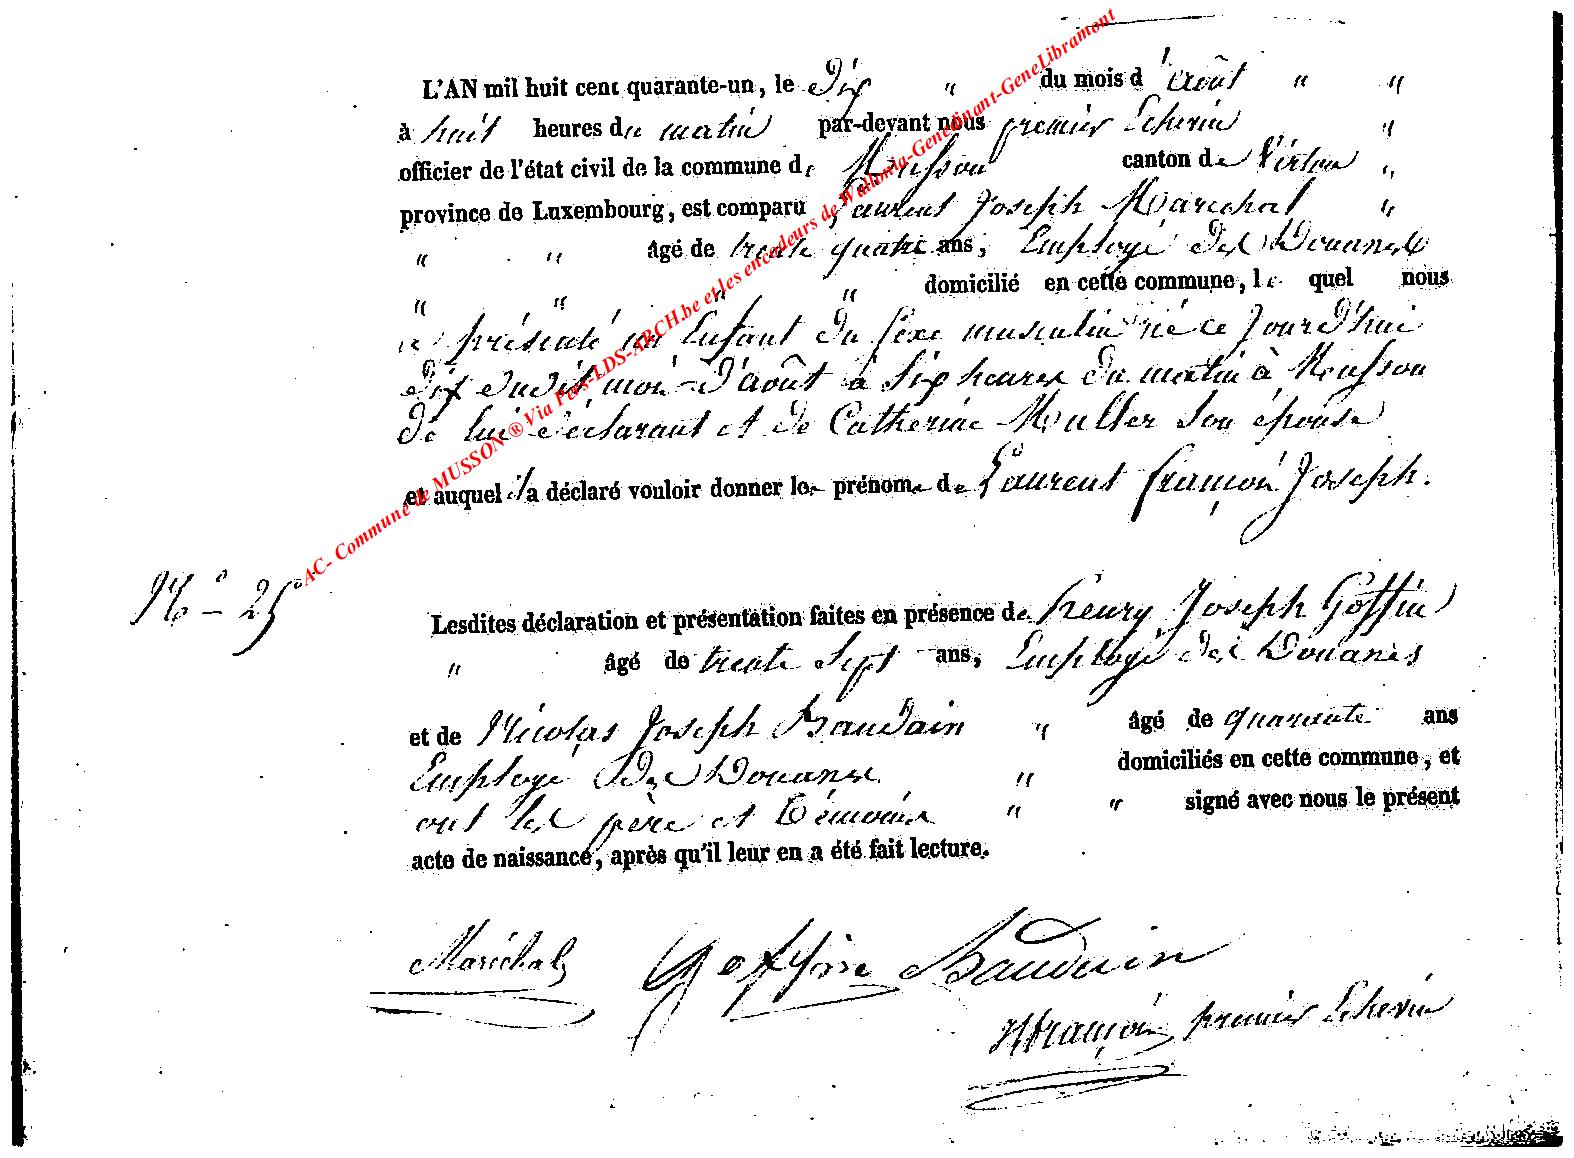 L'AN mil huit cent quarante-un, le Dix " du mois d'août " "
à huit heures du matin par-devant nous premier Echevin "
officier de l'état civil de la commune de Musson canton de Virton "
province de Luxembourg, est comparu Laurent Joseph Maréchal "
" " âgé de trente quatre ans, Employé des Douanes
" " " " domicilié en cette commune, le quel nous
a présenté un Enfant du sexe masculin né ce Jourd'hui
dix dudit mois d'août à Six heures du matin à Musson
de lui déclarant et de Catherine Muller son épouse
et auquel il a déclaré vouloir donner les prénoms de Laurent François Joseph.
N° 25
Lesdites déclaration et présentation faites en présence de Henry Joseph Goffin
" âgé de trente Sept ans, Employé des Douanes
et de Nicolas Joseph Baudain " âgé de quarante ans
Employé des Douanes " domiciliés en cette commune, et
ont les père et témoins " " signé avec nous le présent
acte de naissance, après qu'il leur en a été fait lecture.
Maréchal Goffin Bauduin
françois premier Echevin
AC- Commune de MUSSON ® Via Pers-LDS-ARCH.be et les encodeurs de Wallonia-Genedinant-GeneLibramont